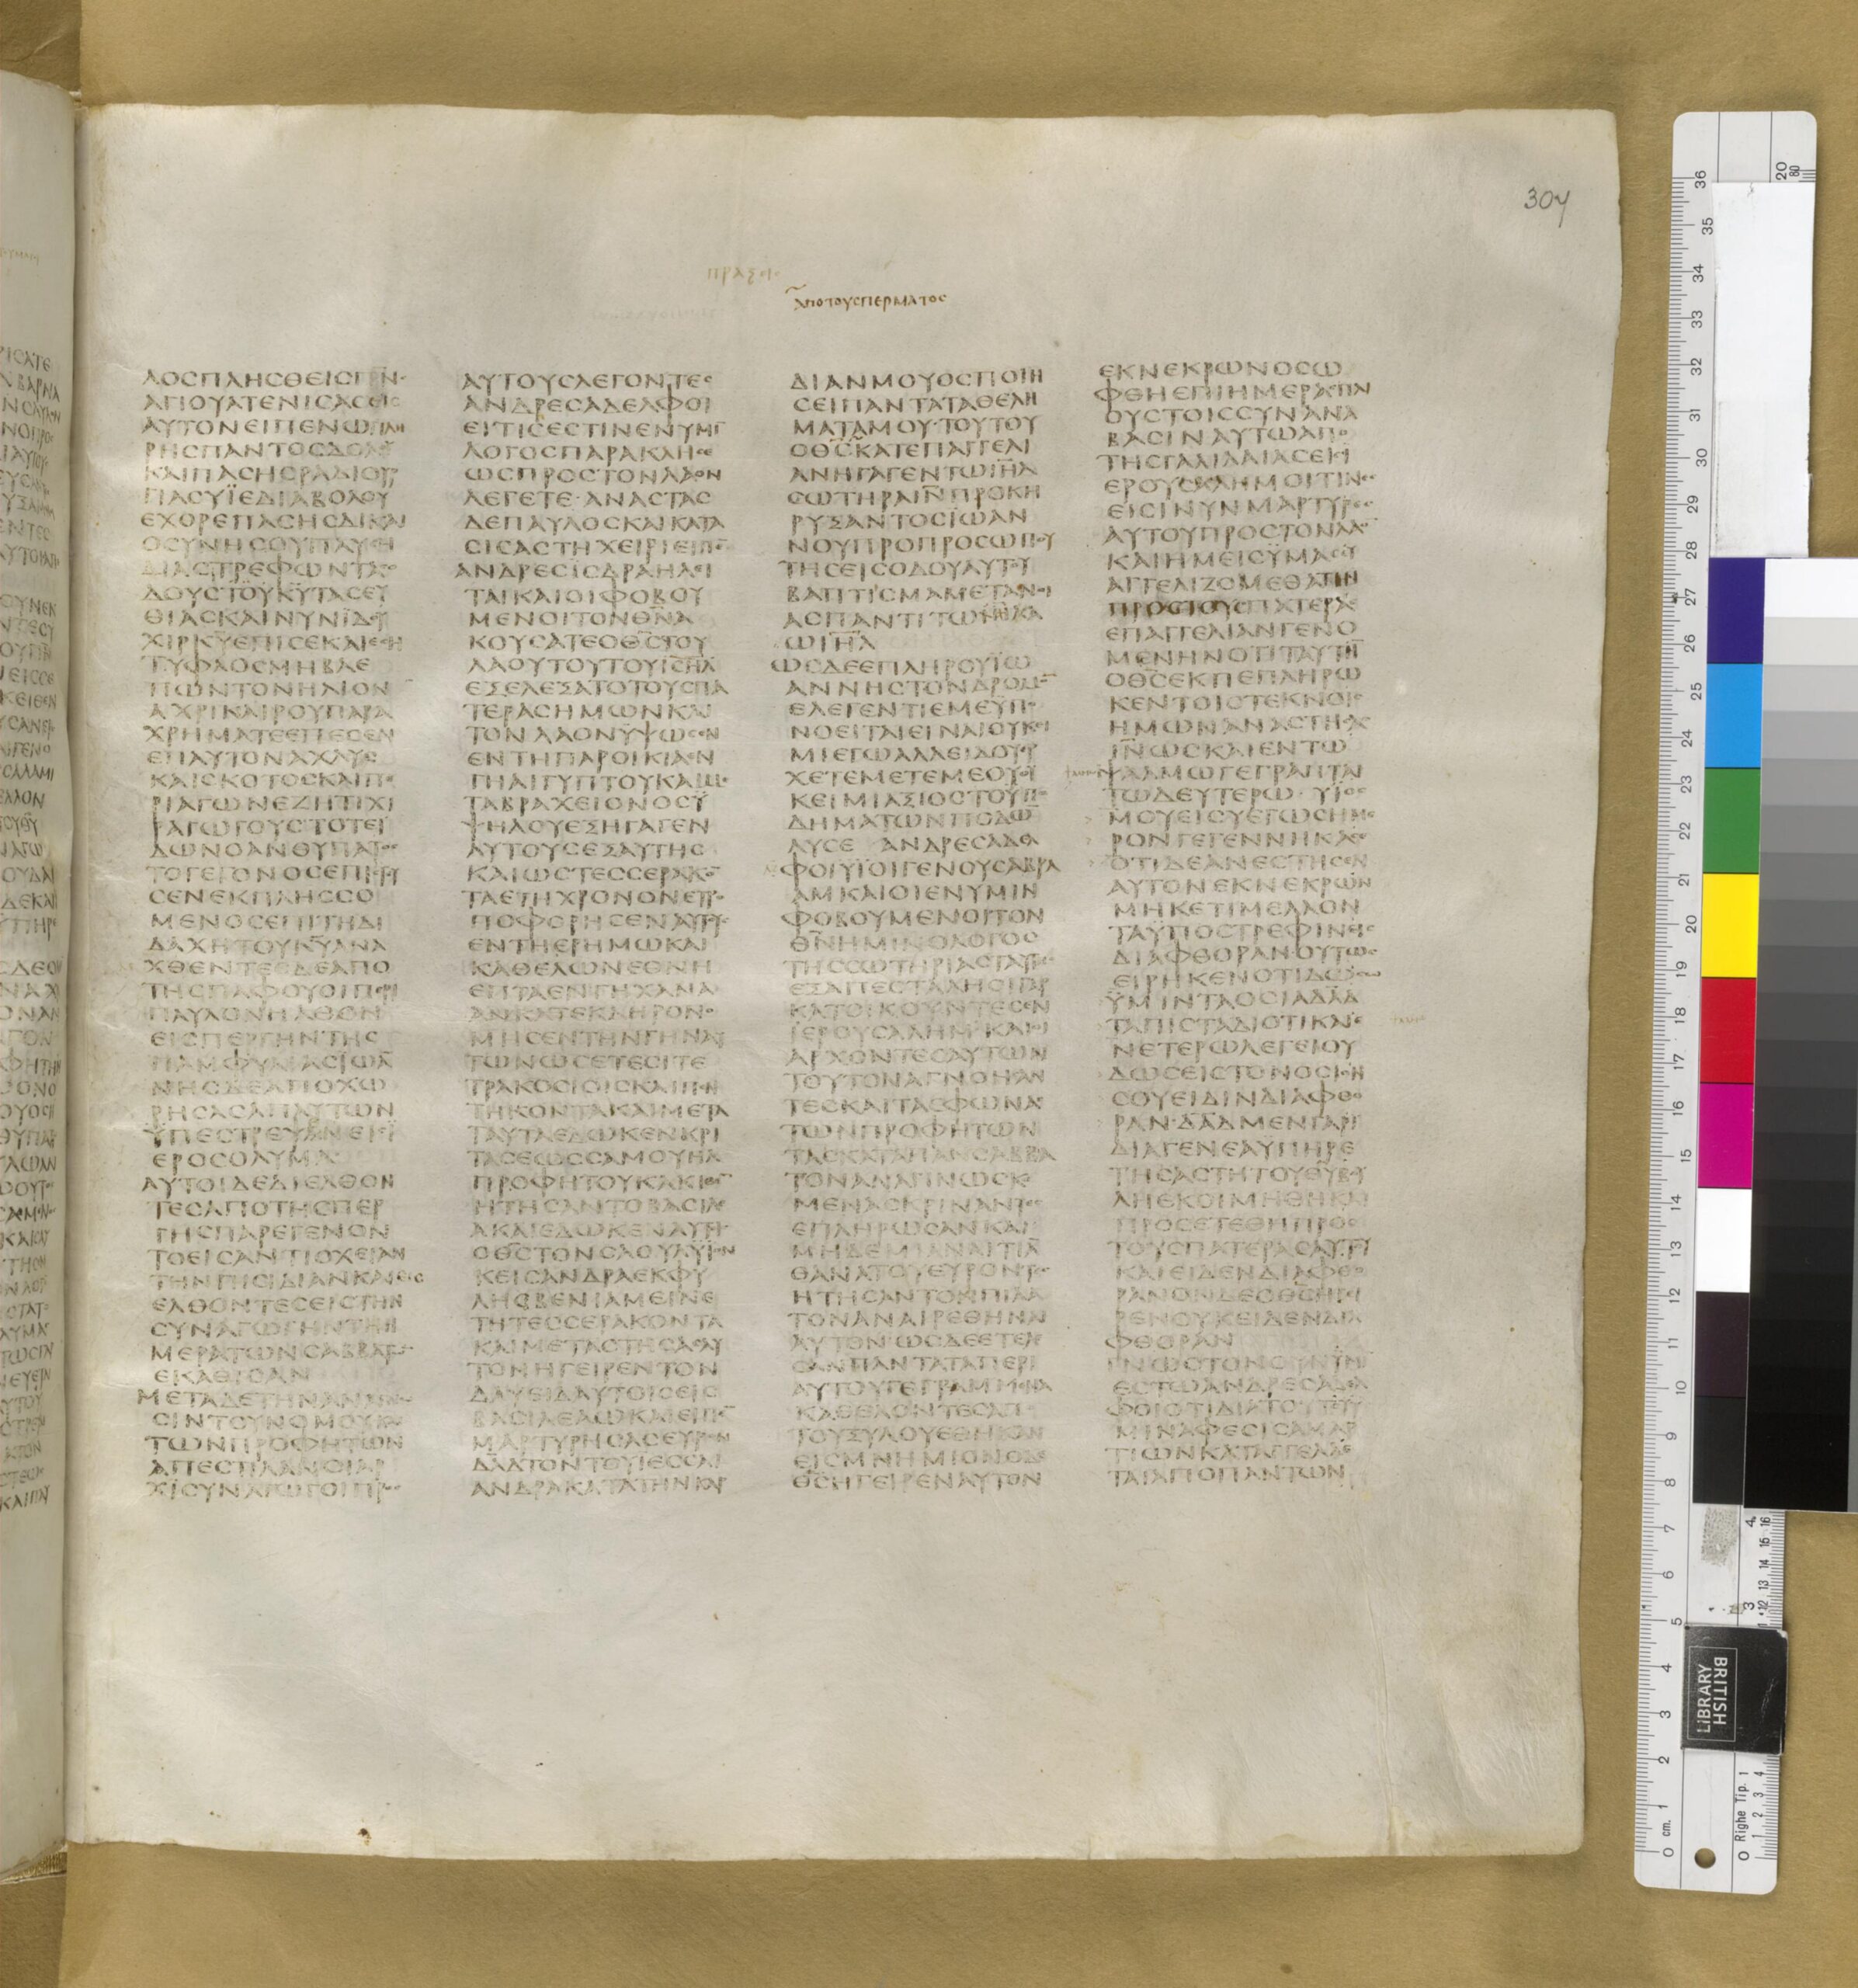 304
ΠΡΑΞΟΙ
ΑΠΟΤΟΥϹΠΕΡΜΑΤΟϹ
ΛΟϹΠΛΗϹΘΕΙϹΠΝ
ΑΓΙΟΥΑΤΕΝΙϹΑϹΕΙϹ
ΑΥΤΟΝΕΙΠΕΝΩΠΛΗ
ΡΗϹΠΑΝΤΟϹΔΟΛΟΥ
ΚΑΙΠΑϹΗϹΡΑΔΙΟΥΡ
ΓΙΑϹΥΪΕΔΙΑΒΟΛΟΥ
ΕΧΘΡΕΠΑϹΗϹΔΙΚΑΙ
ΟϹΥΝΗϹΟΥΠΑΥϹΗ
ΔΙΑϹΤΡΕΦΩΝΤΑϹΟ
ΔΟΥϹΤΟΥΚΥΤΑϹΕΥ
ΘΙΑϹΚΑΙΝΥΝΙΔΟΥ
ΧΙΡΚΥΕΠΙϹΕΚΑΙΕϹΗ
ΤΥΦΛΟϹΜΗΒΛΕ
ΠΩΝΤΟΝΗΛΙΟΝ
ΑΧΡΙΚΑΙΡΟΥΠΑΡΑ
ΧΡΗΜΑΤΕΕΠΕϹΕΝ
ΕΠΑΥΤΟΝΑΧΛΥϹ
ΚΑΙϹΚΟΤΟϹΚΑΙΠΕ
ΡΙΑΓΩΝΕΖΗΤΙΧΙ
ΡΑΓΩΓΟΥϹΤΟΤΕΪ
ΔΩΝΟΑΝΘΥΠΑΤΟϹ
ΤΟΓΕΓΟΝΟϹΕΠΙϹΤΕΥ
ϹΕΝΕΚΠΛΗϹϹΟ
ΜΕΝΟϹΕΠΙΤΗΔΙ
ΔΑΧΗΤΟΥΚΥΑΝΑ
ΧΘΕΝΤΕϹΔΕΑΠΟ
ΤΗϹΠΑΦΟΥΟΙΠΕΡΙ
ΠΑΥΛΟΝΗΛΘΟΝ
ΕΙϹΠΕΡΓΗΝΤΗϹ
ΠΑΜΦΥΛΙΑϹΪΩΑ
ΝΗϹΔΕΑΠΟΧΩ
ΡΗϹΑϹΑΠΑΥΤΩΝ
ΫΠΕϹΤΡΕΨΕΝΕΙϹΪ
ΕΡΟϹΟΛΥΜΑ
ΑΥΤΟΙΔΕΔΙΕΛΘΟΝ
ΤΕϹΑΠΟΤΗϹΠΕΡ
ΓΗϹΠΑΡΕΓΕΝΟΝ
ΤΟΕΙϹΑΝΤΙΟΧΕΙΑΝ
ΤΗΝΠΙϹΙΔΙΑΝΚΑΙΕΙϹ
ΕΛΘΟΝΤΕϹΕΙϹΤΗΝ
ϹΥΝΑΓΩΓΗΝΤΗΗ
ΜΕΡΑΤΩΝϹΑΒΒΑΤΩ
ΕΚΑΘΙϹΑΝ
ΜΕΤΑΔΕΤΗΝΑΝΑΓΝΩ
ϹΙΝΤΟΥΝΟΜΟΥΚΑΙ
ΤΩΝΠΡΟΦΗΤΩΝ
ΑΠΕϹΤΙΛΑΝΟΙΑΡ
ΧΙϹΥΝΑΓΩΓΟΙΠΡΟϹ
ΑΥΤΟΥϹΛΕΓΟΝΤΕϹ
ΑΝΔΡΕϹΑΔΕΛΦΟΙ
ΕΙΤΙϹΕϹΤΙΝΕΝΥΜΙ
ΛΟΓΟϹΠΑΡΑΚΛΗϹΕ
ΩϹΠΡΟϹΤΟΝΛΑΟΝ
ΛΕΓΕΤΕ·ΑΝΑϹΤΑϹ
ΔΕΠΑΥΛΟϹΚΑΙΚΑΤΑ
ϹΙϹΑϹΤΗΧΕΙΡΙΕΙΠΕ
ΑΝΔΡΕϹΙϹΔΡΑΗΛΕΙ
ΤΑΙΚΑΙΟΙΦΟΒΟΥ
ΜΕΝΟΙΤΟΝΘΝΑ
ΚΟΥϹΑΤΕΟΘϹΤΟΥ
ΛΑΟΥΤΟΥΤΟΥΙϹΗΛ
ΕΞΕΛΕΞΑΤΟΤΟΥϹΠΑ
ΤΕΡΑϹΗΜΩΝΚΑΙ
ΤΟΝΛΑΟΝΥΨΩϹΕΝ
ΕΝΤΗΠΑΡΟΙΚΙΑΕΝ
ΓΗΑΙΓΥΠΤΟΥΚΑΙΜΕ
ΤΑΒΡΑΧΕΙΟΝΟϹΫ
ΨΗΛΟΥΕΞΗΓΑΓΕΝ
ΑΥΤΟΥϹΕΞΑΥΤΗϹ
ΚΑΙΩϹΤΕϹϹΕΡΑΚΟ
ΤΑΕΤΗΧΡΟΝΟΝΕΤΡΟ
ΠΟΦΟΡΗϹΕΝΑΥΤΟΥϹ
ΕΝΤΗΕΡΗΜΩΚΑΙ
ΚΑΘΕΛΩΝΕΘΝΗ
ΕΠΤΑΕΝΓΗΧΑΝΑ
ΑΝΚΑΤΕΚΛΗΡΟΝΟ
ΜΗϹΕΝΤΗΝΓΗΝΑΥ
ΤΩΝΩϹΕΤΕϹΙΤΕ
ΤΡΑΚΟϹΙΟΙϹΚΑΙΠΕΝ
ΤΗΚΟΝΤΑΚΑΙΜΕΤΑ
ΤΑΥΤΑΕΔΩΚΕΝΚΡΙ
ΤΑϹΕΩϹϹΑΜΟΥΗΛ
ΠΡΟΦΗΤΟΥΚΑΚΙΘΕ
ΗΤΗϹΑΝΤΟΒΑϹΙΛΕ
ΑΚΑΙΕΔΩΚΕΝΑΥΤΟΙϹ
ΟΘϹΤΟΝϹΑΟΥΛΥΪΟΝ
ΚΕΙϹΑΝΔΡΑΕΚΦΥ
ΛΗϹΒΕΝΙΑΜΕΙΝΕ
ΤΗΤΕϹϹΕΡΑΚΟΝΤΑ
ΚΑΙΜΕΤΑϹΤΗϹΑϹΑΥ
ΤΟΝΗΓΕΙΡΕΝΤΟΝ
ΔΑΥΕΙΔΑΥΤΟΙϹΕΙϹ
ΒΑϹΙΛΕΑΩΚΑΙΕΙΠΕ
ΜΑΡΤΥΡΗϹΑϹΕΥΡΟΝ
ΔΑΔΤΟΝΤΟΥΙΕϹϹΑΙ
ΑΝΔΡΑΚΑΤΑΤΗΝΚΑΡ
ΔΙΑΝΜΟΥΟϹΠΟΙΗ
ϹΕΙΠΑΝΤΑΤΑΘΕΛΗ
ΜΑΤΑΜΟΥ·ΤΟΥΤΟΥ
ΟΘϹΚΑΤΕΠΑΓΓΕΛΙ
ΑΝΗΓΑΓΕΝΤΩΙΗΛ
ϹΩΤΗΡΑΙΝΠΡΟΚΗ
ΡΥΞΑΝΤΟϹΪΩΑΝ
ΝΟΥΠΡΟΠΡΟϹΩΠΟΥ
ΤΗϹΕΙϹΟΔΟΥΑΥΤΟΥ
ΒΑΠΤΙϹΜΑΜΕΤΑΝΟΙ
ΑϹΠΑΝΤΙΤΩΛΑ
ΩΙΗΛ
ΩϹΔΕΕΠΛΗΡΟΥΪΩ
ΑΝΝΗϹΤΟΝΔΡΟΜΟ
ΕΛΕΓΕΝΤΙΕΜΕΥΠΟ
ΝΟΕΙΤΑΙΕΙΝΑΙΟΥΚΕΙ
ΜΙΕΓΩΑΛΛΕΙΔΟΥΕΡ
ΧΕΤΕΜΕΤΕΜΕΟΥΟΥ
ΚΕΙΜΙΑΞΙΟϹΤΟΥΠΟ
ΔΗΜΑΤΩΝΠΟΔΩ
ΛΥϹΕ ΑΝΔΡΕϹΑΔΕΛ
ΦΟΙΥΪΟΙΓΕΝΟΥϹΑΒΡΑ
ΑΜΚΑΙΟΙΕΝΥΜΙΝ
ΦΟΒΟΥΜΕΝΟΙΤΟΝ
ΘΝΗΜΙΝΟΛΟΓΟϹ
ΤΗϹϹΩΤΗΡΙΑϹΤΑΥΤΗϹ
ΕΞΑΠΕϹΤΑΛΗΟΙΓΑΡ
ΚΑΤΟΙΚΟΥΝΤΕϹΕΝ
ΪΕΡΟΥϹΑΛΗΜΚΑΙΟΙ
ΑΡΧΟΝΤΕϹΑΥΤΩΝ
ΤΟΥΤΟΝΑΓΝΟΗϹΑΝ
ΤΕϹΚΑΙΤΑϹΦΩΝΑϹ
ΤΩΝΠΡΟΦΗΤΩΝ
ΤΑϹΚΑΤΑΠΑΝϹΑΒΒΑ
ΤΟΝΑΝΑΓΙΝΩϹΚΟ
ΜΕΝΑϹΚΡΙΝΑΝΤΕϹ
ΕΠΛΗΡΩϹΑΝΚΑΙ
ΜΗΔΕΜΙΑΝΑΙΤΙΑ
ΘΑΝΑΤΟΥΕΥΡΟΝΤΕϹ
ΗΤΗϹΑΝΤΟΝΠΙΛΑ
ΤΟΝΑΝΑΙΡΕΘΗΝΑΙ
ΑΥΤΟΝΩϹΔΕΕΤΕΛΕ
ϹΑΝΠΑΝΤΑΤΑΠΕΡΙ
ΑΥΤΟΥΓΕΓΡΑΜΜΕΝΑ
ΚΑΘΕΛΟΝΤΕϹΑΠΟ
ΤΟΥΞΥΛΟΥΕΘΗΚΑΝ
ΕΙϹΜΝΗΜΙΟΝΟΔΕ
ΘϹΗΓΕΙΡΕΝΑΥΤΟΝ
ΕΚΝΕΚΡΩΝΟϹΩ
ΦΘΗΕΠΙΗΜΕΡΑϹΠΛΙ
ΟΥϹΤΟΙϹϹΥΝΑΝΑ
ΒΑϹΙΝΑΥΤΩΑΠΟ
ΤΗϹΓΑΛΙΛΑΙΑϹΕΙϹΪ
ΕΡΟΥϹΑΛΗΜΟΙΤΙΝΕϹ
ΕΙϹΙΝΥΝΜΑΡΤΥΡΕϹ
ΑΥΤΟΥΠΡΟϹΤΟΝΛΑΟ
ΚΑΙΗΜΕΙϹΫΜΑϹΕΥ
ΑΓΓΕΛΙΖΟΜΕΘΑΤΗΝ
ΠΡΟϹΤΟΥϹΠΑΤΕΡΑϹ
ΕΠΑΓΓΕΛΙΑΝΓΕΝΟ
ΜΕΝΗΝΟΤΙΤΑΥΤΗ
ΟΘϹΕΚΠΕΠΛΗΡΩ
ΚΕΝΤΟΙϹΤΕΚΝΟΙϹ
ΗΜΩΝΑΝΑϹΤΗϹΑϹ
ΙΝΩϹΚΑΙΕΝΤΩ
ΨΑΛΜΩΓΕΓΡΑΠΤΑΙ
ΤΩΔΕΥΤΕΡΩ·ΥΪΟϹ
ΜΟΥΕΙϹΥΕΓΩϹΗΜΕ
ΡΟΝΓΕΓΕΝΝΗΚΑϹΕ
ΟΤΙΔΕΑΝΕϹΤΗϹΕΝ
ΑΥΤΟΝΕΚΝΕΚΡΩΝ
ΜΗΚΕΤΙΜΕΛΛΟΝ
ΤΑΫΠΟϹΤΡΕΦΙΝΕΙϹ
ΔΙΑΦΘΟΡΑΝ·ΟΥΤΩϹ
ΕΙΡΗΚΕΝΟΤΙΔΩϹΩ
ΫΜΙΝΤΑΟϹΙΑΔΑΔ
ΤΑΠΙϹΤΑΔΙΟΤΙΚΑΙΕ
ΝΕΤΕΡΩΛΕΓΕΙΟΥ
ΔΩϹΕΙϹΤΟΝΟϹΙΟΝ
ϹΟΥΕΙΔΙΝΔΙΑΦΘΟ
ΡΑΝ·ΔΑΔΜΕΝΓΑΡΪ
ΔΙΑΓΕΝΕΑΥΠΗΡΕ
ΤΗϹΑϹΤΗΤΟΥΘΥΒΟΥ
ΛΗΕΚΟΙΜΗΘΗΚΑΙ
ΠΡΟϹΕΤΕΘΗΠΡΟϹ
ΤΟΥϹΠΑΤΕΡΑϹΑΥΤΟΥ
ΚΑΙΕΙΔΕΝΔΙΑΦΘΟ
ΡΑΝΟΝΔΕΟΘϹΗΓΙ
ΡΕΝΟΥΚΕΙΔΕΝΔΙΑ
ΦΘΟΡΑΝ
ΓΝΩϹΤΟΝΟΥΝΫΜΙ
ΕϹΤΩΑΝΔΡΕϹΑΔΕΛ
ΦΟΙΟΤΙΔΙΑΤΟΥΤΟΥΫ
ΜΙΝΑΦΕϹΙϹΑΜΑΡ
ΤΙΩΝΚΑΤΑΓΓΕΛΛΕ
ΤΑΙΑΠΟΠΑΝΤΩΝ
BRITISH
LIBRARY